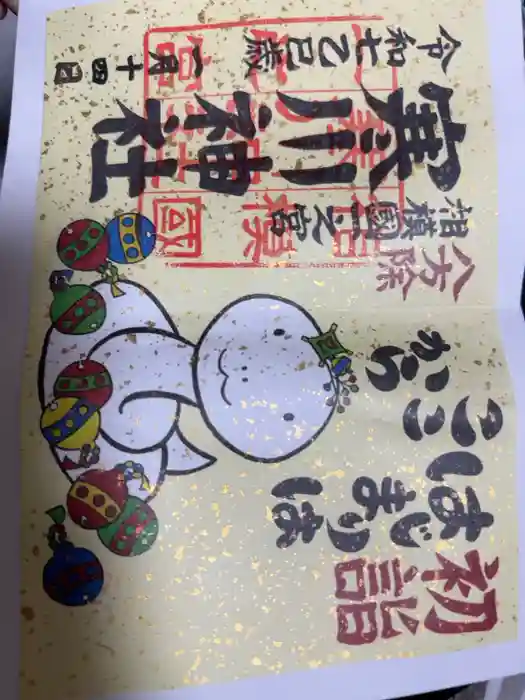 初詣
はじまりは
ここから
八方除
相模國一之宮
寒川神社
令和七乙巳歳
一月十四日